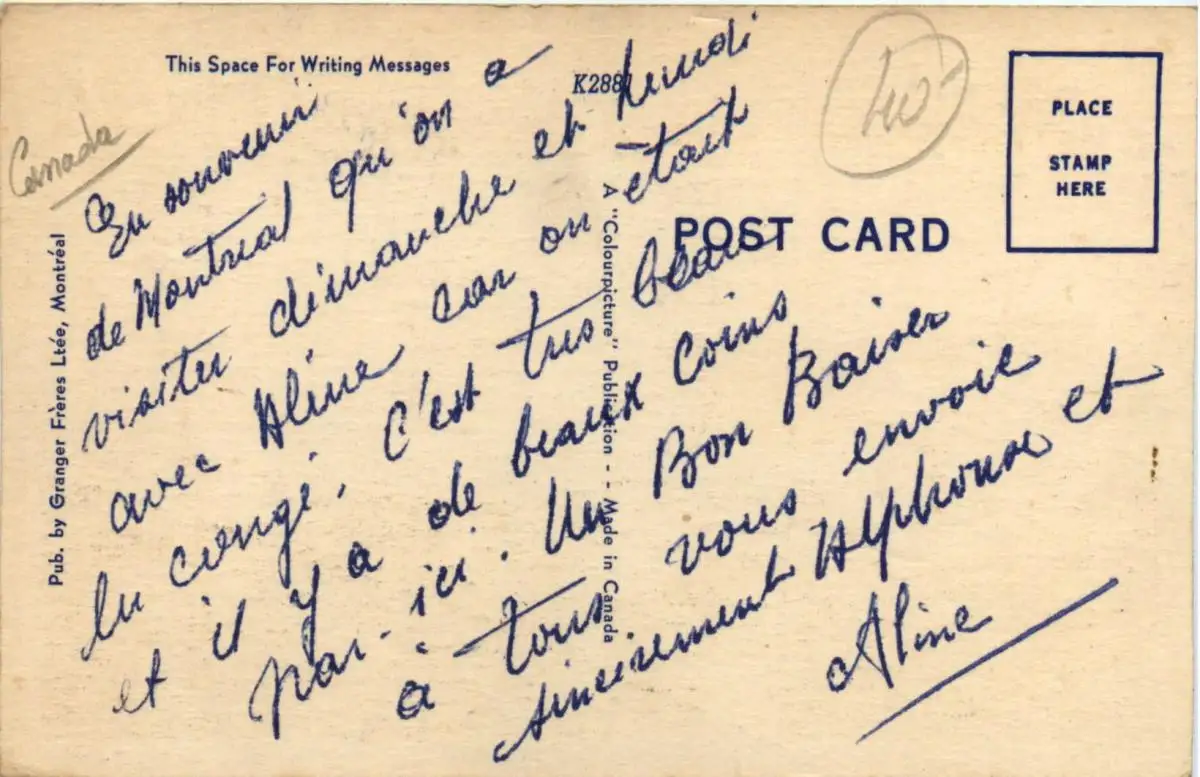 This Space For Writing Messages
K2887
Canada
PLACE
STAMP
HERE
POST CARD
Pub. by Granger Frères Ltée, Montréal
A "Colourpicture" Publication - Made in Canada
En souvenir
de Montreal qu'on a
visiter dimanche et lundi
avec Aline car on étais
en congé. C'est tres beau
et il y a de beaux coins
par-ici. Un Bon Baiser
à tous vous envoie
sincèrement Alphonse et
Aline